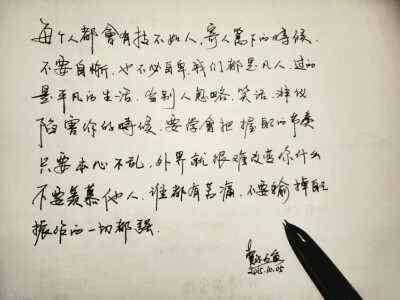 每个人都會有技不如人,寄人篱下的時候.
不要自惭,也不必自卑.我們都是凡人.过的
是平凡的生活.当别人忽略.笑话.非议
陷害你的時候.要学會把握
只要本心不乱,外界就很难改变你什么
不要羡慕他人.谁都有苦痛.不要输掉
振作的一切都强.
2015.10.05